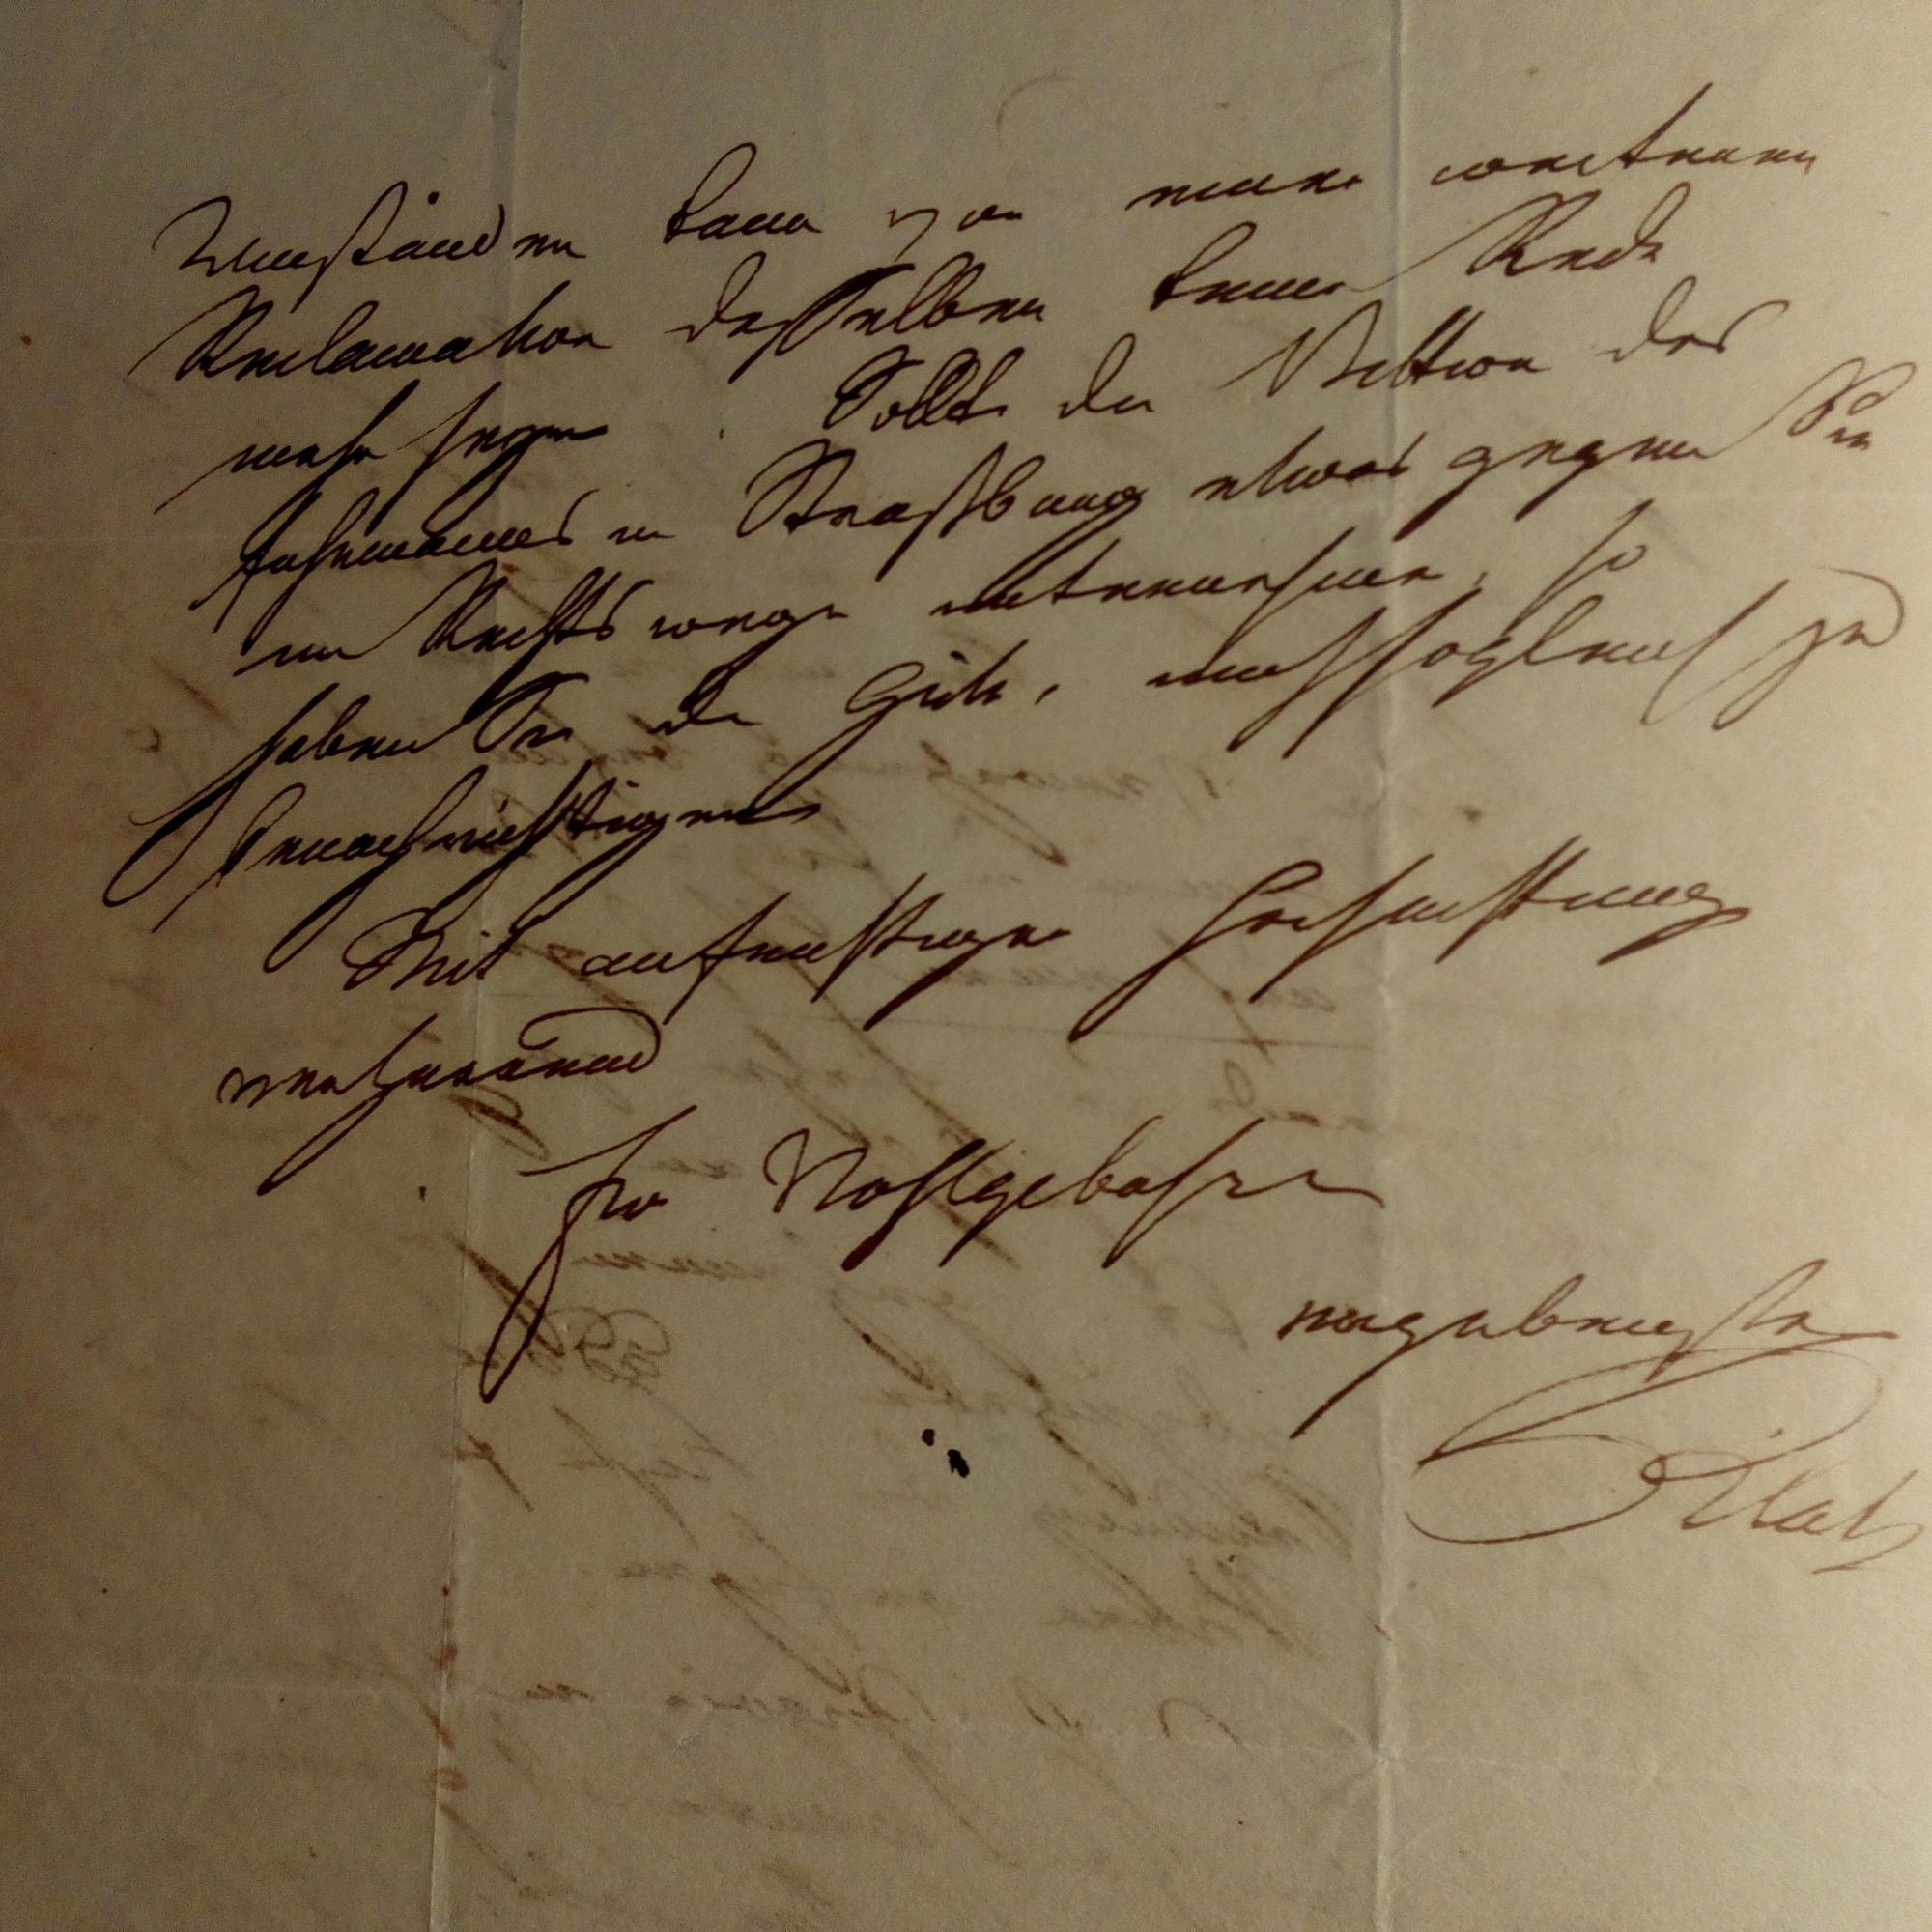 Umständen kann von einer weiteren
Reclamation desselben keine Rede
mehr seyn. Sollte der Patron des
Fuhrmannes in Straßburg etwas gegen Sie
im Rechtswege unternehmen, so
haben Sie die Güte, mich sogleich zu
benachrichtigen
Mit aufrichtiger Hochachtung
verharrend
Ew Wohlgebohren
ergebenster
Pilat